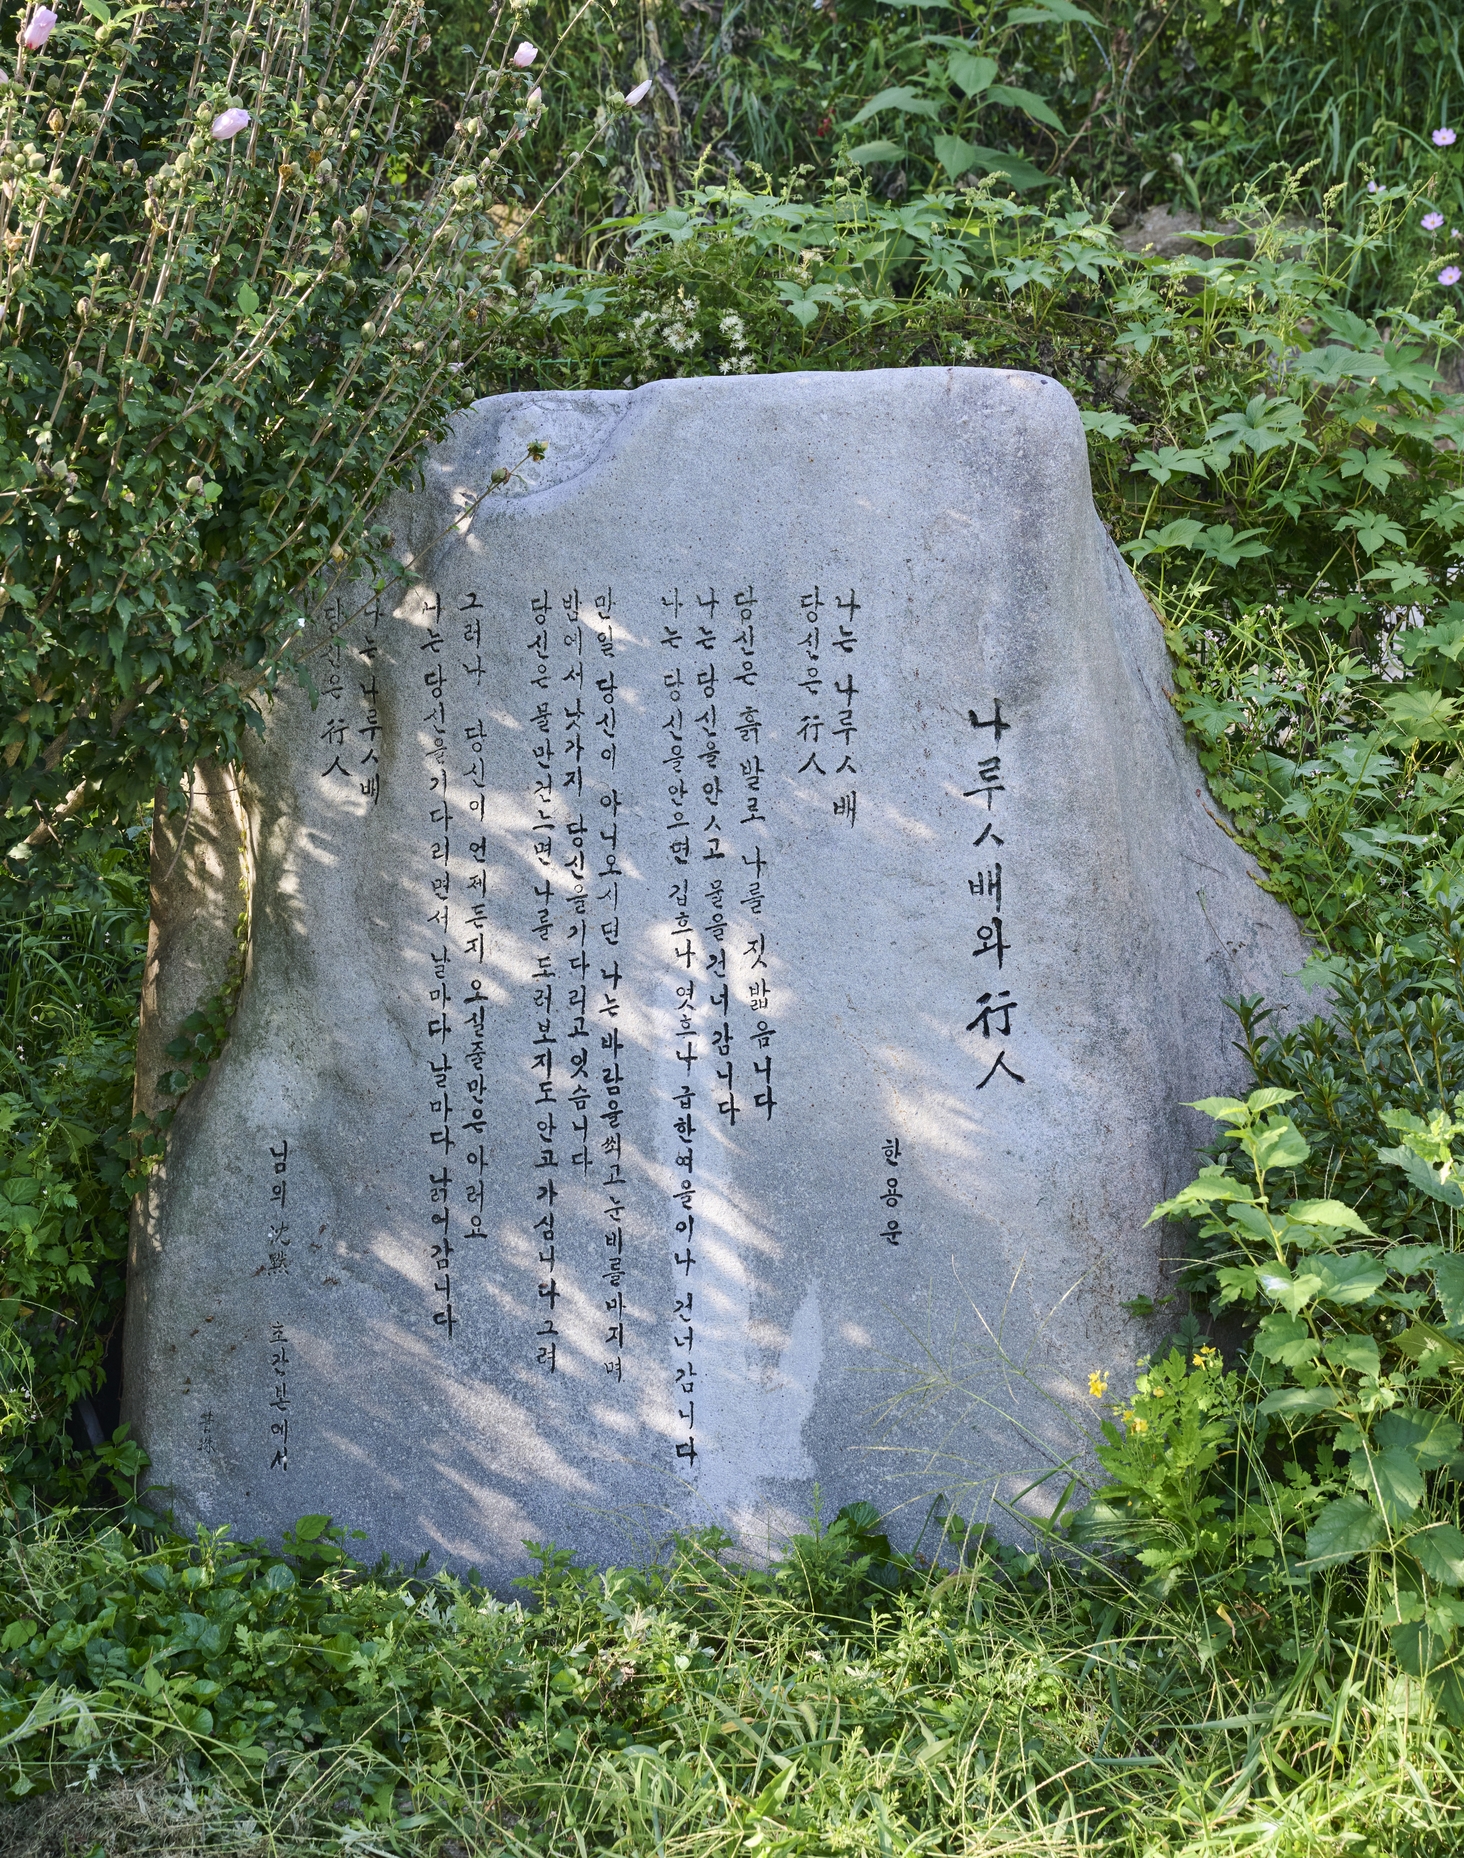 나루ㅅ배와 行人
한용운
나는 나루ㅅ배
당신은 行人
당신은 흙발로 나를 짓밟음니다
나는 당신을안ㅅ고 물을건너감니다
나는 당신을안으면 깁흐나 엿흐나 급한여울이나 건너감니다
만일 당신이 아니오시면 나는 바람을쐬고 눈비를마지며
밤에서 낫가지 당신을기다리고잇슴니다
당신은 물만건느면 나를 도러보지도안고 가심니다그려
그러나 당신이 언제든지 오실줄만은 아러요
나는 당신을기다리면서 날마다 날마다 낡어감니다
나는 나루ㅅ배
당신은 行人
님의 沈默 초간본에서